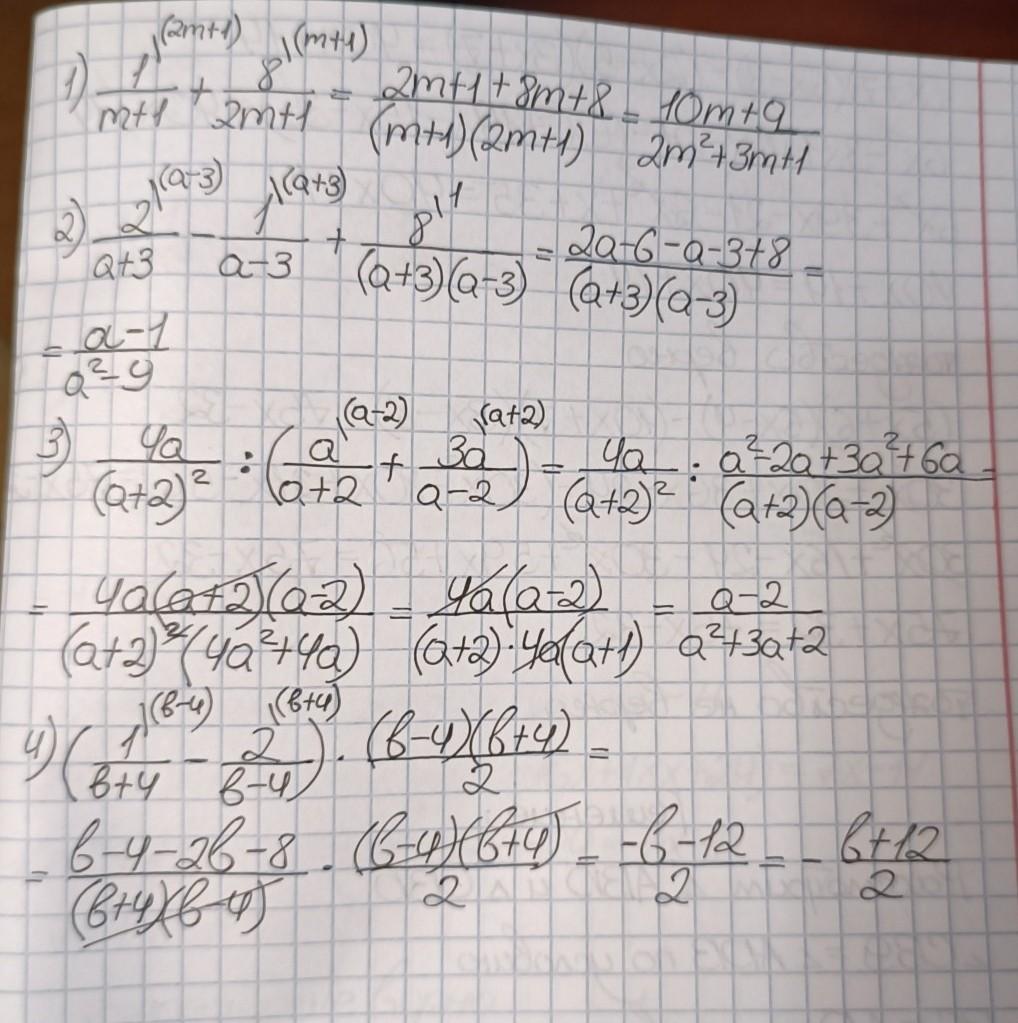 1) \frac{1^{\backslash(2m+1)}}{m+1} + \frac{8^{\backslash(m+1)}}{2m+1} = \frac{2m+1+8m+8}{(m+1)(2m+1)} = \frac{10m+9}{2m^2+3m+1}
2) \frac{2^{\backslash(a-3)}}{a+3} - \frac{1^{\backslash(a+3)}}{a-3} + \frac{8^{\backslash 1}}{(a+3)(a-3)} = \frac{2a-6-a-3+8}{(a+3)(a-3)} =
= \frac{a-1}{a^2-9}
3) \frac{4a}{(a+2)^2} : (\frac{a^{\backslash(a-2)}}{a+2} + \frac{3a^{\backslash(a+2)}}{a-2}) = \frac{4a}{(a+2)^2} : \frac{a^2-2a+3a^2+6a}{(a+2)(a-2)} =
= \frac{4a(a+2)(a-2)}{(a+2)^2(4a^2+4a)} = \frac{4a(a-2)}{(a+2)·4a(a+1)} = \frac{a-2}{a^2+3a+2}
4) (\frac{1^{\backslash(в-4)}}{в+4} - \frac{2^{\backslash(в+4)}}{в-4}) · \frac{(в-4)(в+4)}{2} =
= \frac{в-4-2в-8}{(в+4)(в-4)} · \frac{(в-4)(в+4)}{2} = \frac{-в-12}{2} = - \frac{в+12}{2}